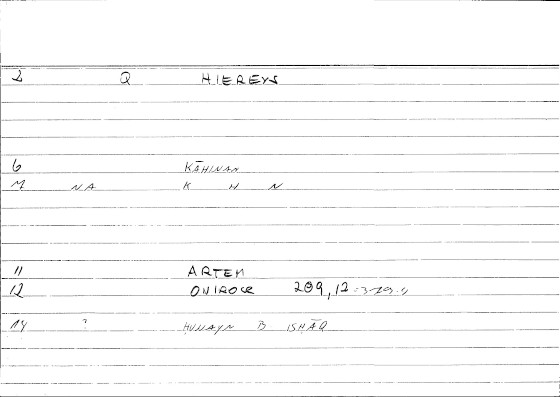 2 Q HIEREYS
6 KĀHINAN
M NA K H N
11 ARTEM
12 ONIROCR 209,12
14 ? HUNAYN B ISHĀQ